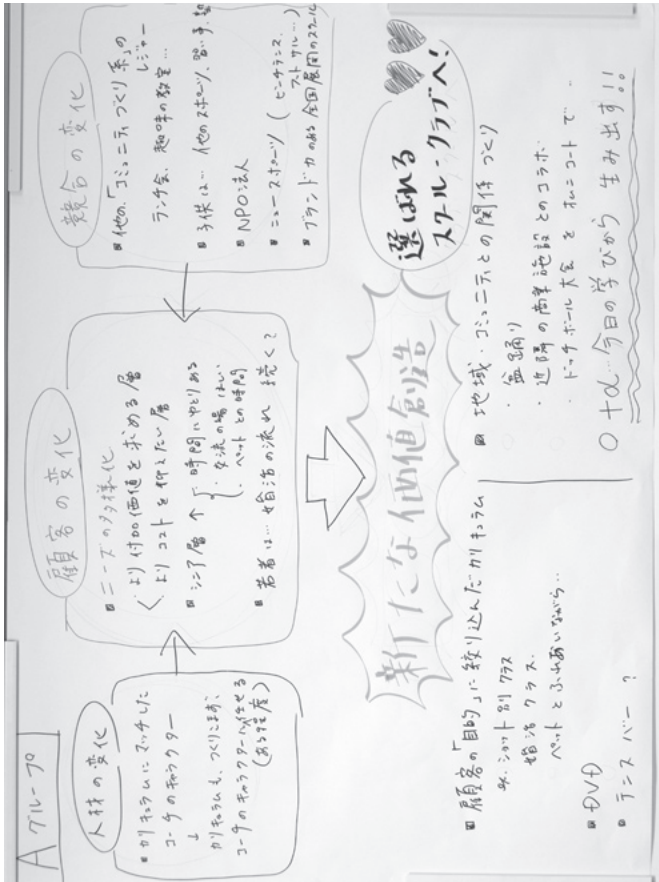 Aグループ
人材の変化
■ カリキュラムにマッチした
コーチのキャラクター
↓
カリキュラムも、つくりこまず、
コーチのキャラクターに任せる
(ある程度)
顧客の変化
■ ニーズの多様化
より付加価値を求める層
よりコストを抑えたい層
■ シニア層 ↑
・時間にゆとりある
・交流の場ほしい
・ペットとの時間
■ 若者は… 婚活の流れ 続く?
競合の変化
■ 他の「コミュニティづくり系」の
レジャー
ランチ会、趣味の教室…
■ 子供は… 他のスポーツ、習い事、塾
■ NPO法人
■ ニュースポーツ (ビーチテニス、
フットサル…)
■ ブランド力のある全国展開のスクール
新たな価値創造
選ばれる
スクール・クラブへ!
■ 顧客の「目的」に絞り込んだカリキュラム
ex. ショット別クラス
婚活クラス.
ペットとふれあいながら..
■ DVD
■ テニスバー?
■ 地域・コミュニティとの関係づくり
・盆踊り
・近隣の商業施設とのコラボ
・ドッチボール大会をオムニコートで…
○ +α…今日の学びから 生み出す!!